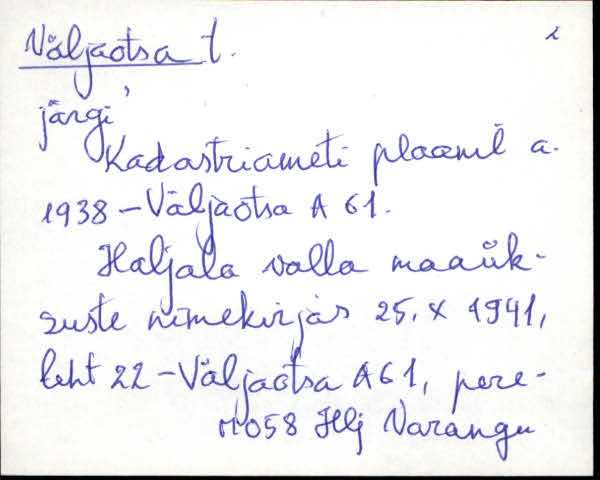 Väljaotsa t. 2
järgi'
Kadastriameti plaanil a.
1938 – Väljaotsa A 61.
Haljala valla maaük-
suste nimekirjas 25. X 1941,
leht 22 – Väljaotsa A61, pere-
058 Hlj Varangu